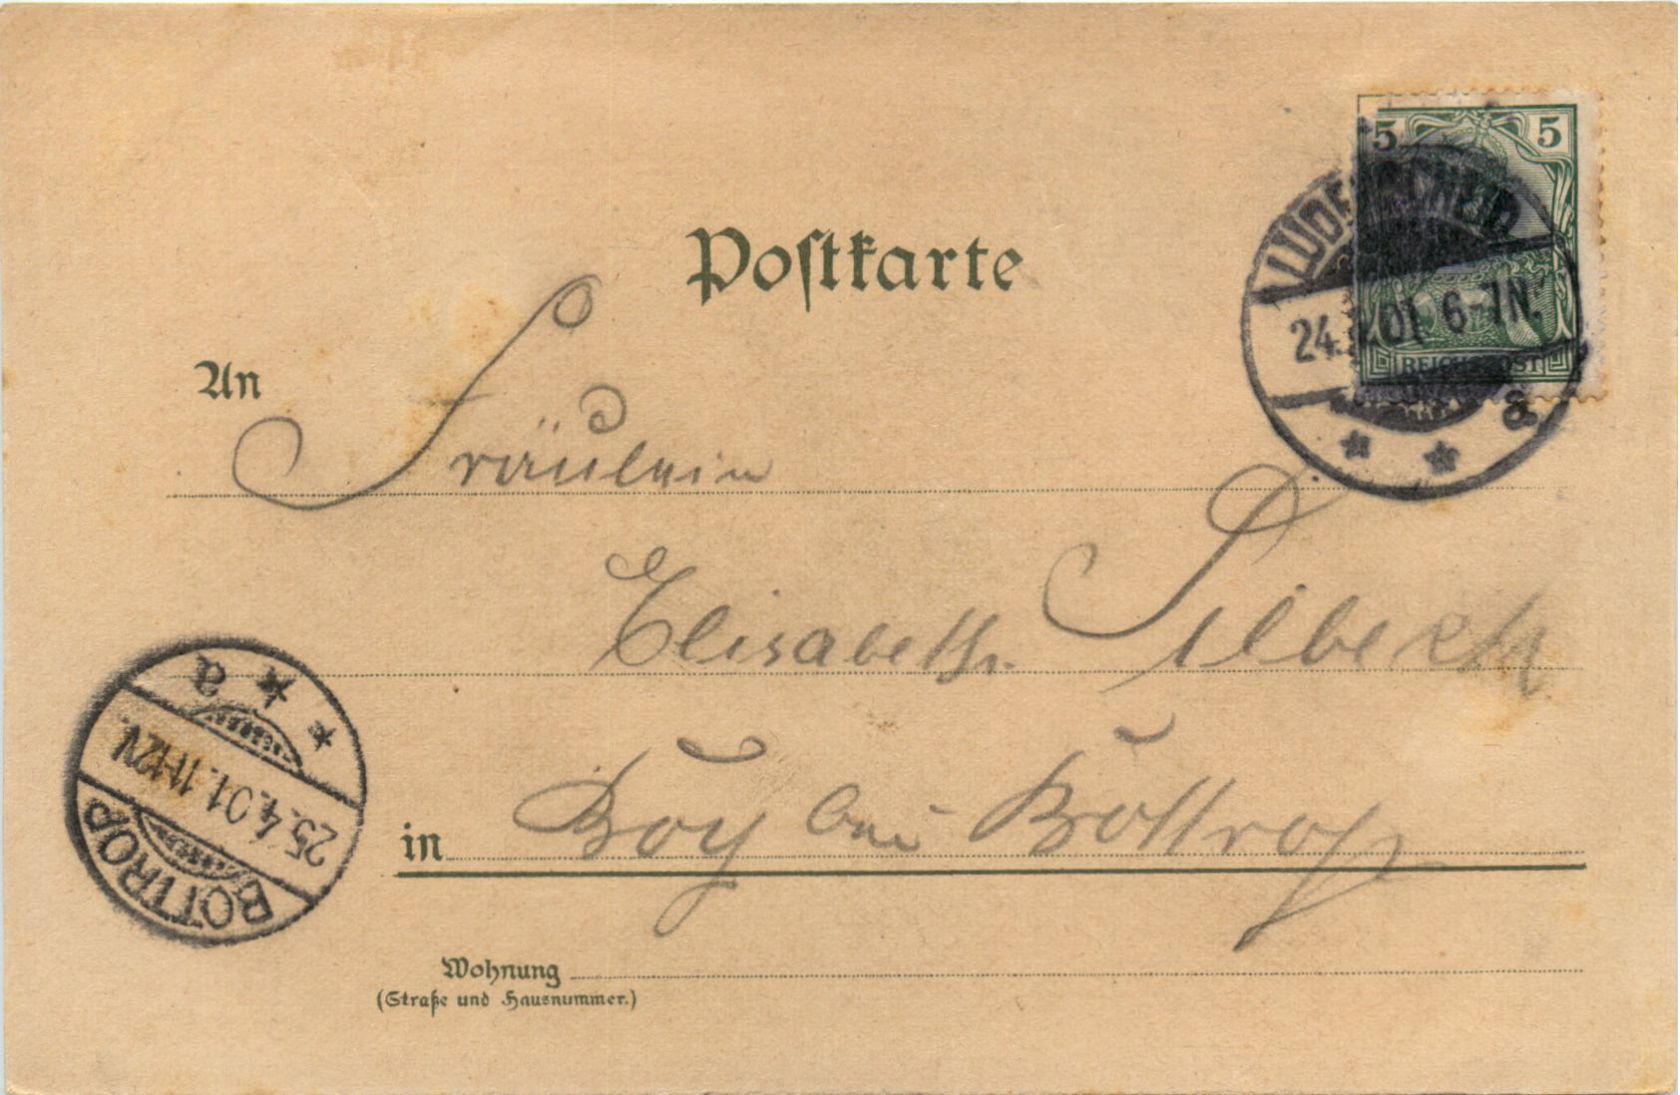 Postkarte
5 5
LÜDENSCHEID
24. 01 6-7N.
REICHSPOST
a
An Fräulein
Elisabeth
Boy bei Bottrop
in
Wohnung
(Straße und Hausnummer.)
BOTTROP
25.4.01. 11-12V.
a